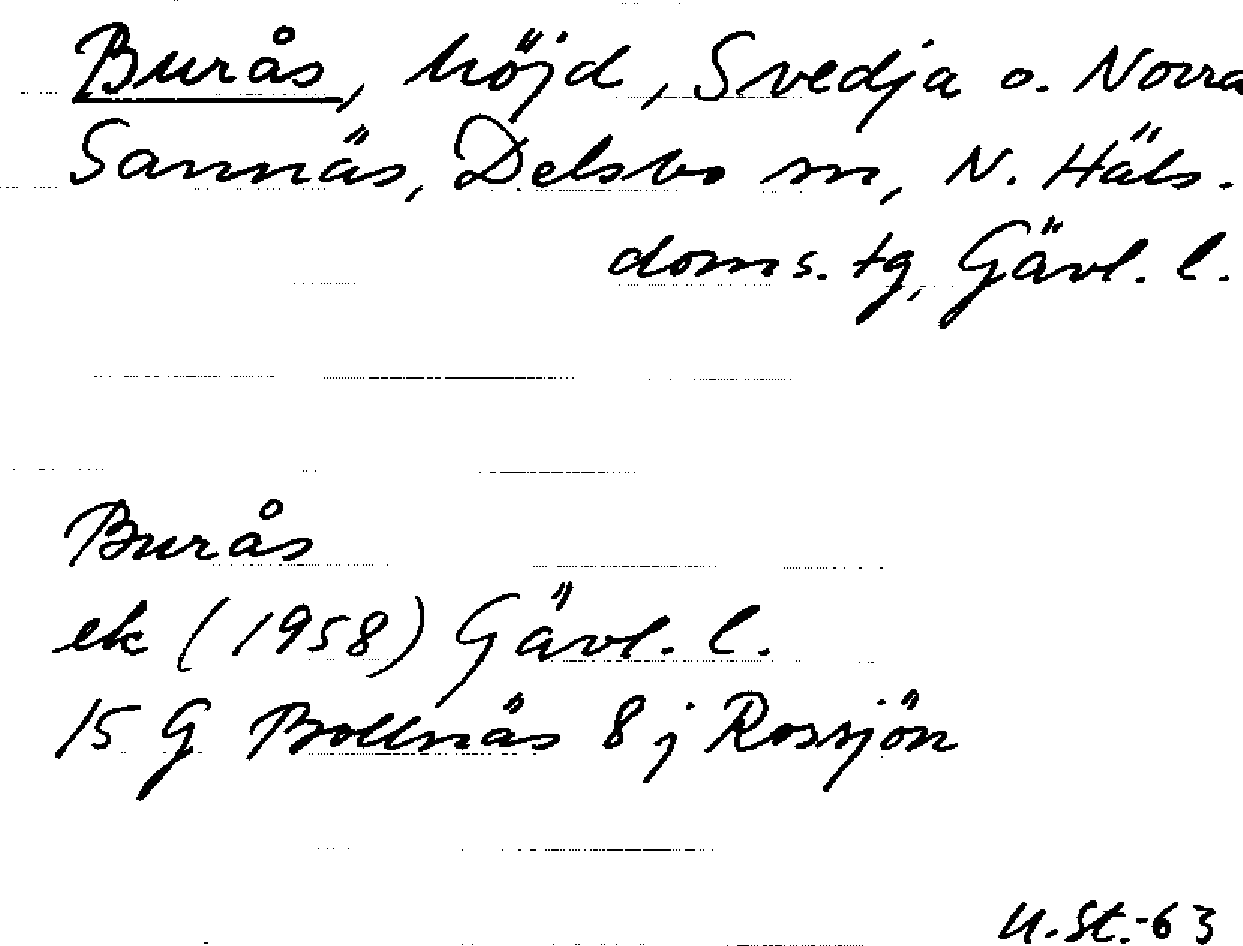 Burås, höjd, Svedja o. Norra
Sannäs, Delsbo sn, N. Häls.
doms. tg, Gävl. l.
Burås
ek (1958) Gävl. l.
15 G Bollnäs 8 j Rossjön
U.St.-63